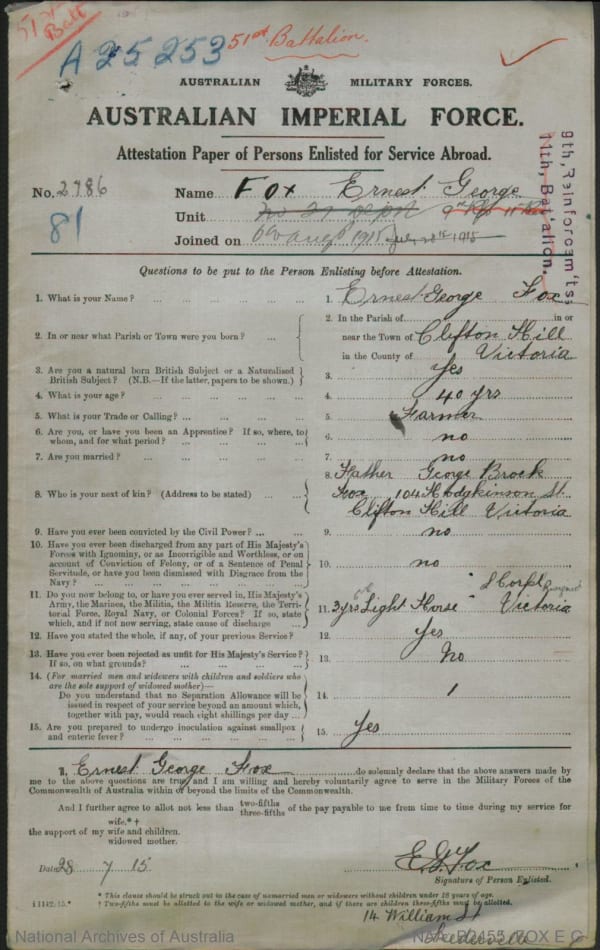 51st Batt
A25253 51st Battalion.
AUSTRALIAN MILITARY FORCES.
AUSTRALIAN IMPERIAL FORCE.
Attestation Paper of Persons Enlisted for Service Abroad.
9th, Reinforcem'ts,
11th, Battalion.
No. 2786 Name Fox Ernest George
81 Unit No 29 Depot
Joined on July 28th 1915
Questions to be put to the Person Enlisting before Attestation.
1. What is your Name? ... 1. Ernest George Fox
2. In or near what Parish or Town were you born? ... 2. In the Parish of in or
near the Town of Clifton Hill
in the County of Victoria
3. Are you a natural born British Subject or a Naturalised British Subject? (N.B.—If the latter, papers to be shown.) 3. Yes
4. What is your age? ... 4. 40 yrs
5. What is your Trade or Calling? ... 5. Farmer
6. Are you, or have you been an Apprentice? If so, where, to whom, and for what period? ... 6. no
7. Are you married? ... 7. no
8. Who is your next of kin? (Address to be stated) ... 8. Father George Brock
Fox 104 Hodgkinson St.
Clifton Hill Victoria
9. Have you ever been convicted by the Civil Power? ... 9. no
10. Have you ever been discharged from any part of His Majesty's
Forces with Ignominy, or as Incorrigible and Worthless, or on
account of Conviction of Felony, or of a Sentence of Penal
Servitude, or have you been dismissed with Disgrace from the
Navy? ... 10. no
11. Do you now belong to, or have you ever served in, His Majesty's
Army, the Marines, the Militia, the Militia Reserve, the Terri-
torial Force, Royal Navy, or Colonial Forces? If so, state
which, and if not now serving, state cause of discharge 11. 3 yrs Light Horse Victoria
12. Have you stated the whole, if any, of your previous Service? 12. Yes
13. Have you ever been rejected as unfit for His Majesty's Service?
If so, on what grounds? ... 13. No
14. (For married men and widowers with children and soldiers who
are the sole support of widowed mother)—
Do you understand that no Separation Allowance will be
issued in respect of your service beyond an amount which,
together with pay, would reach eight shillings per day ... 14. /
15. Are you prepared to undergo inoculation against smallpox
and enteric fever? ... 15. Yes
I, Ernest George Fox do solemnly declare that the above answers made by
me to the above questions are true, and I am willing and hereby voluntarily agree to serve in the Military Forces of the
Commonwealth of Australia within or beyond the limits of the Commonwealth.
And I further agree to allot not less than two-fifths three-fifths of the pay payable to me from time to time during my service for
wife.*†
the support of my wife and children.
widowed mother.
Date 28 7 15 E G Fox
Signature of Person Enlisted.
* This clause should be struck out in the case of unmarried men or widowers without children under 18 years of age.
† Two-fifths must be allotted to the wife or widowed mother, and if there are children three-fifths must be allotted.
14 William St
National Archives of Australia
NAA: B2455, FOX E G